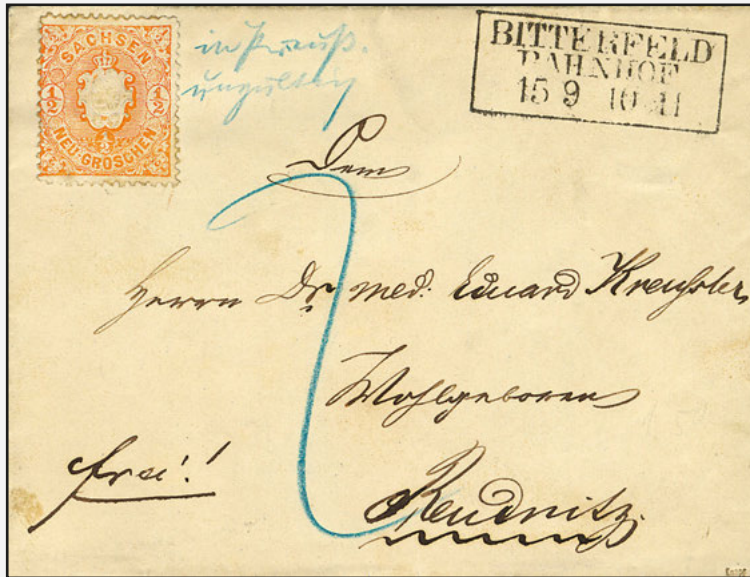 SACHSEN
1/2 1/2
1/2
NEU-GROSCHEN
in Preuß.
ungültig
BITTERFELD
BAHNHOF
15 9 10-11
Dem
Herrn Dr. med. Eduard
Wohlgeboren
frei!!
Reudnitz.